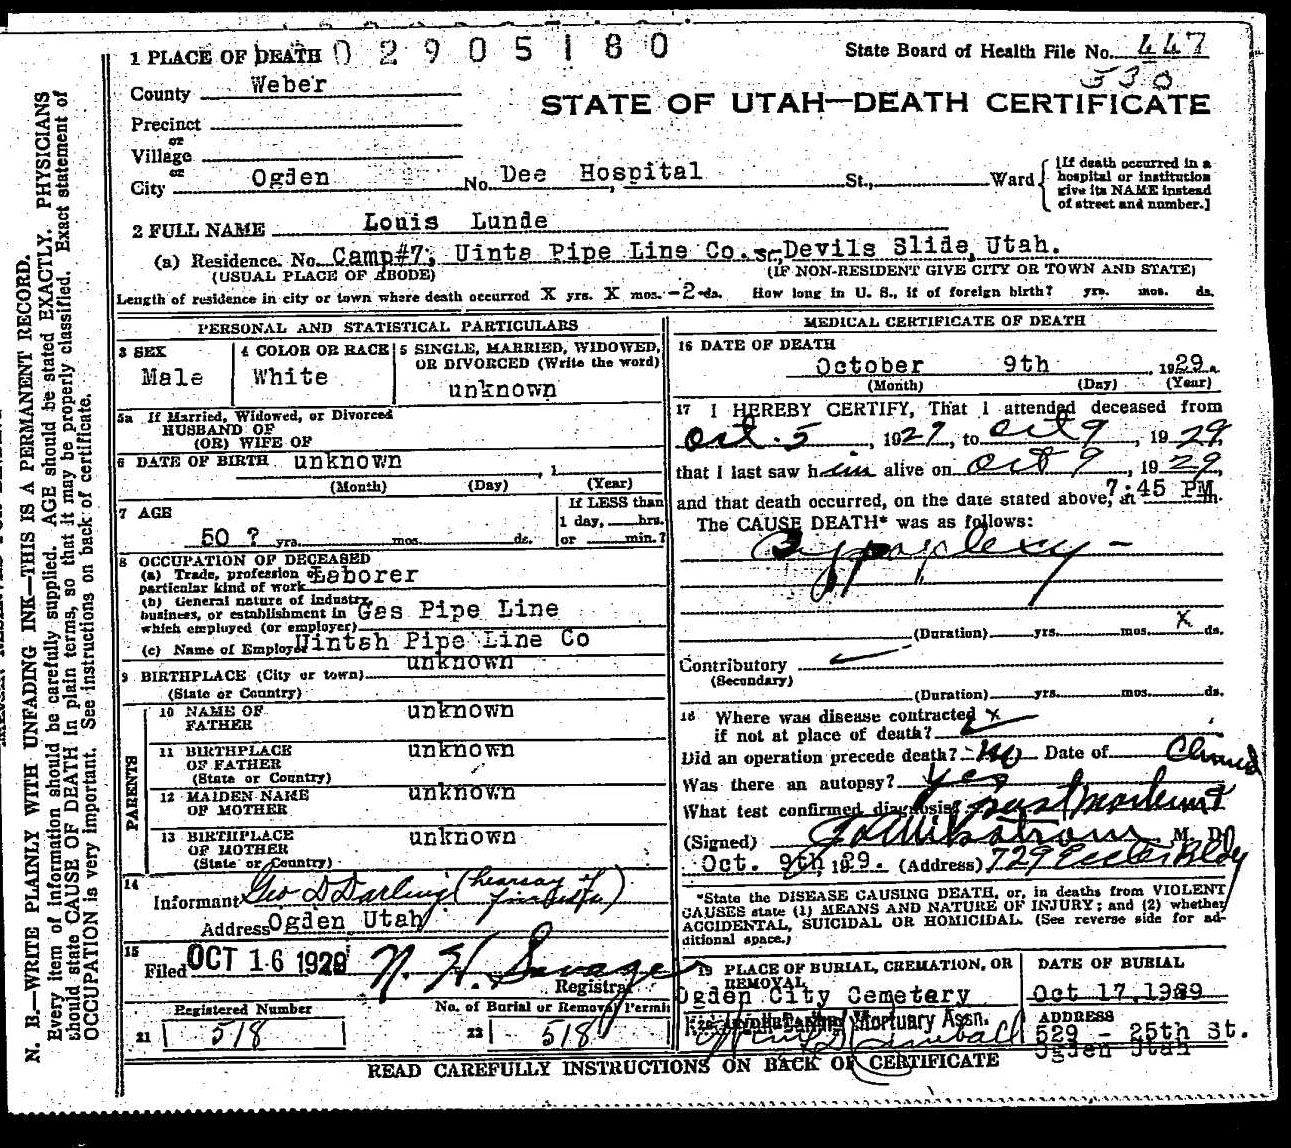 1 PLACE OF DEATH 0 2 9 0 5 1 8 0
State Board of Health File No. 447
530
County Weber
STATE OF UTAH—DEATH CERTIFICATE
Precinct
or
Village
or
City Ogden No. Dee Hospital St., Ward
[If death occurred in a
hospital or institution
give its NAME instead
of street and number.]
2 FULL NAME Louis Lunde
(a) Residence. No. Camp#7, Uinta Pipe Line Co. St. Devils Slide, Utah.
(USUAL PLACE OF ABODE) (IF NON-RESIDENT GIVE CITY OR TOWN AND STATE)
Length of residence in city or town where death occurred X yrs. X mos. -2- ds. How long in U. S., if of foreign birth? yrs. mos. ds.
PERSONAL AND STATISTICAL PARTICULARS
3 SEX
Male
4 COLOR OR RACE
White
5 SINGLE, MARRIED, WIDOWED,
OR DIVORCED (Write the word)
unknown
5a If Married, Widowed, or Divorced
HUSBAND OF
(OR) WIFE OF
6 DATE OF BIRTH unknown , 1
(Month) (Day) (Year)
7 AGE
50 ? yrs. mos. ds.
If LESS than
1 day, hrs.
or min.?
8 OCCUPATION OF DECEASED
(a) Trade, profession or Laborer
particular kind of work
(b) General nature of industry,
business, or establishment in Gas Pipe Line
which employed (or employer)
(c) Name of Employer Uintah Pipe Line Co
9 BIRTHPLACE (City or town) unknown
(State or Country)
PARENTS
10 NAME OF
FATHER
unknown
11 BIRTHPLACE
OF FATHER
(State or Country)
unknown
12 MAIDEN NAME
OF MOTHER
unknown
13 BIRTHPLACE
OF MOTHER
(State or Country)
unknown
14
Informant Geo D Darling (hearsay
Address Ogden Utah
15
Filed OCT 16 1929 N. H. Savage
Registrar
Registered Number
21 518
No. of Burial or Removal Permit
22 518
MEDICAL CERTIFICATE OF DEATH
16 DATE OF DEATH
October 9th , 1929.
(Month) (Day) (Year)
17 I HEREBY CERTIFY, That I attended deceased from
Oct. 5 , 1929, to Oct 9 , 1929,
that I last saw him alive on Oct 9 , 1929,
and that death occurred, on the date stated above, at 7:45 PM m.
The CAUSE DEATH* was as follows:
Appoplexy -
(Duration) yrs. mos. X ds.
Contributory
(Secondary)
(Duration) yrs. mos. ds.
18 Where was disease contracted x
if not at place of death?
Did an operation precede death? No Date of
Was there an autopsy? yes
What test confirmed diagnosis? post mortem
(Signed) M. D.
Oct. 9th, 1929. (Address) 729 Eccles Bldg
*State the DISEASE CAUSING DEATH, or, in deaths from VIOLENT
CAUSES state (1) MEANS AND NATURE OF INJURY; and (2) whether
ACCIDENTAL, SUICIDAL OR HOMICIDAL. (See reverse side for ad-
ditional space.)
19 PLACE OF BURIAL, CREMATION, OR
REMOVAL
Ogden City Cemetery
DATE OF BURIAL
Oct 17, 1929
Mortuary Assn.
ADDRESS
529 - 25th St.
Ogden Utah
READ CAREFULLY INSTRUCTIONS ON BACK OF CERTIFICATE
N. B.—WRITE PLAINLY WITH UNFADING INK—THIS IS A PERMANENT RECORD.
Every item of information should be carefully supplied. AGE should be stated EXACTLY. PHYSICIANS
should state CAUSE OF DEATH in plain terms, so that it may be properly classified. Exact statement of
OCCUPATION is very important. See instructions on back of certificate.